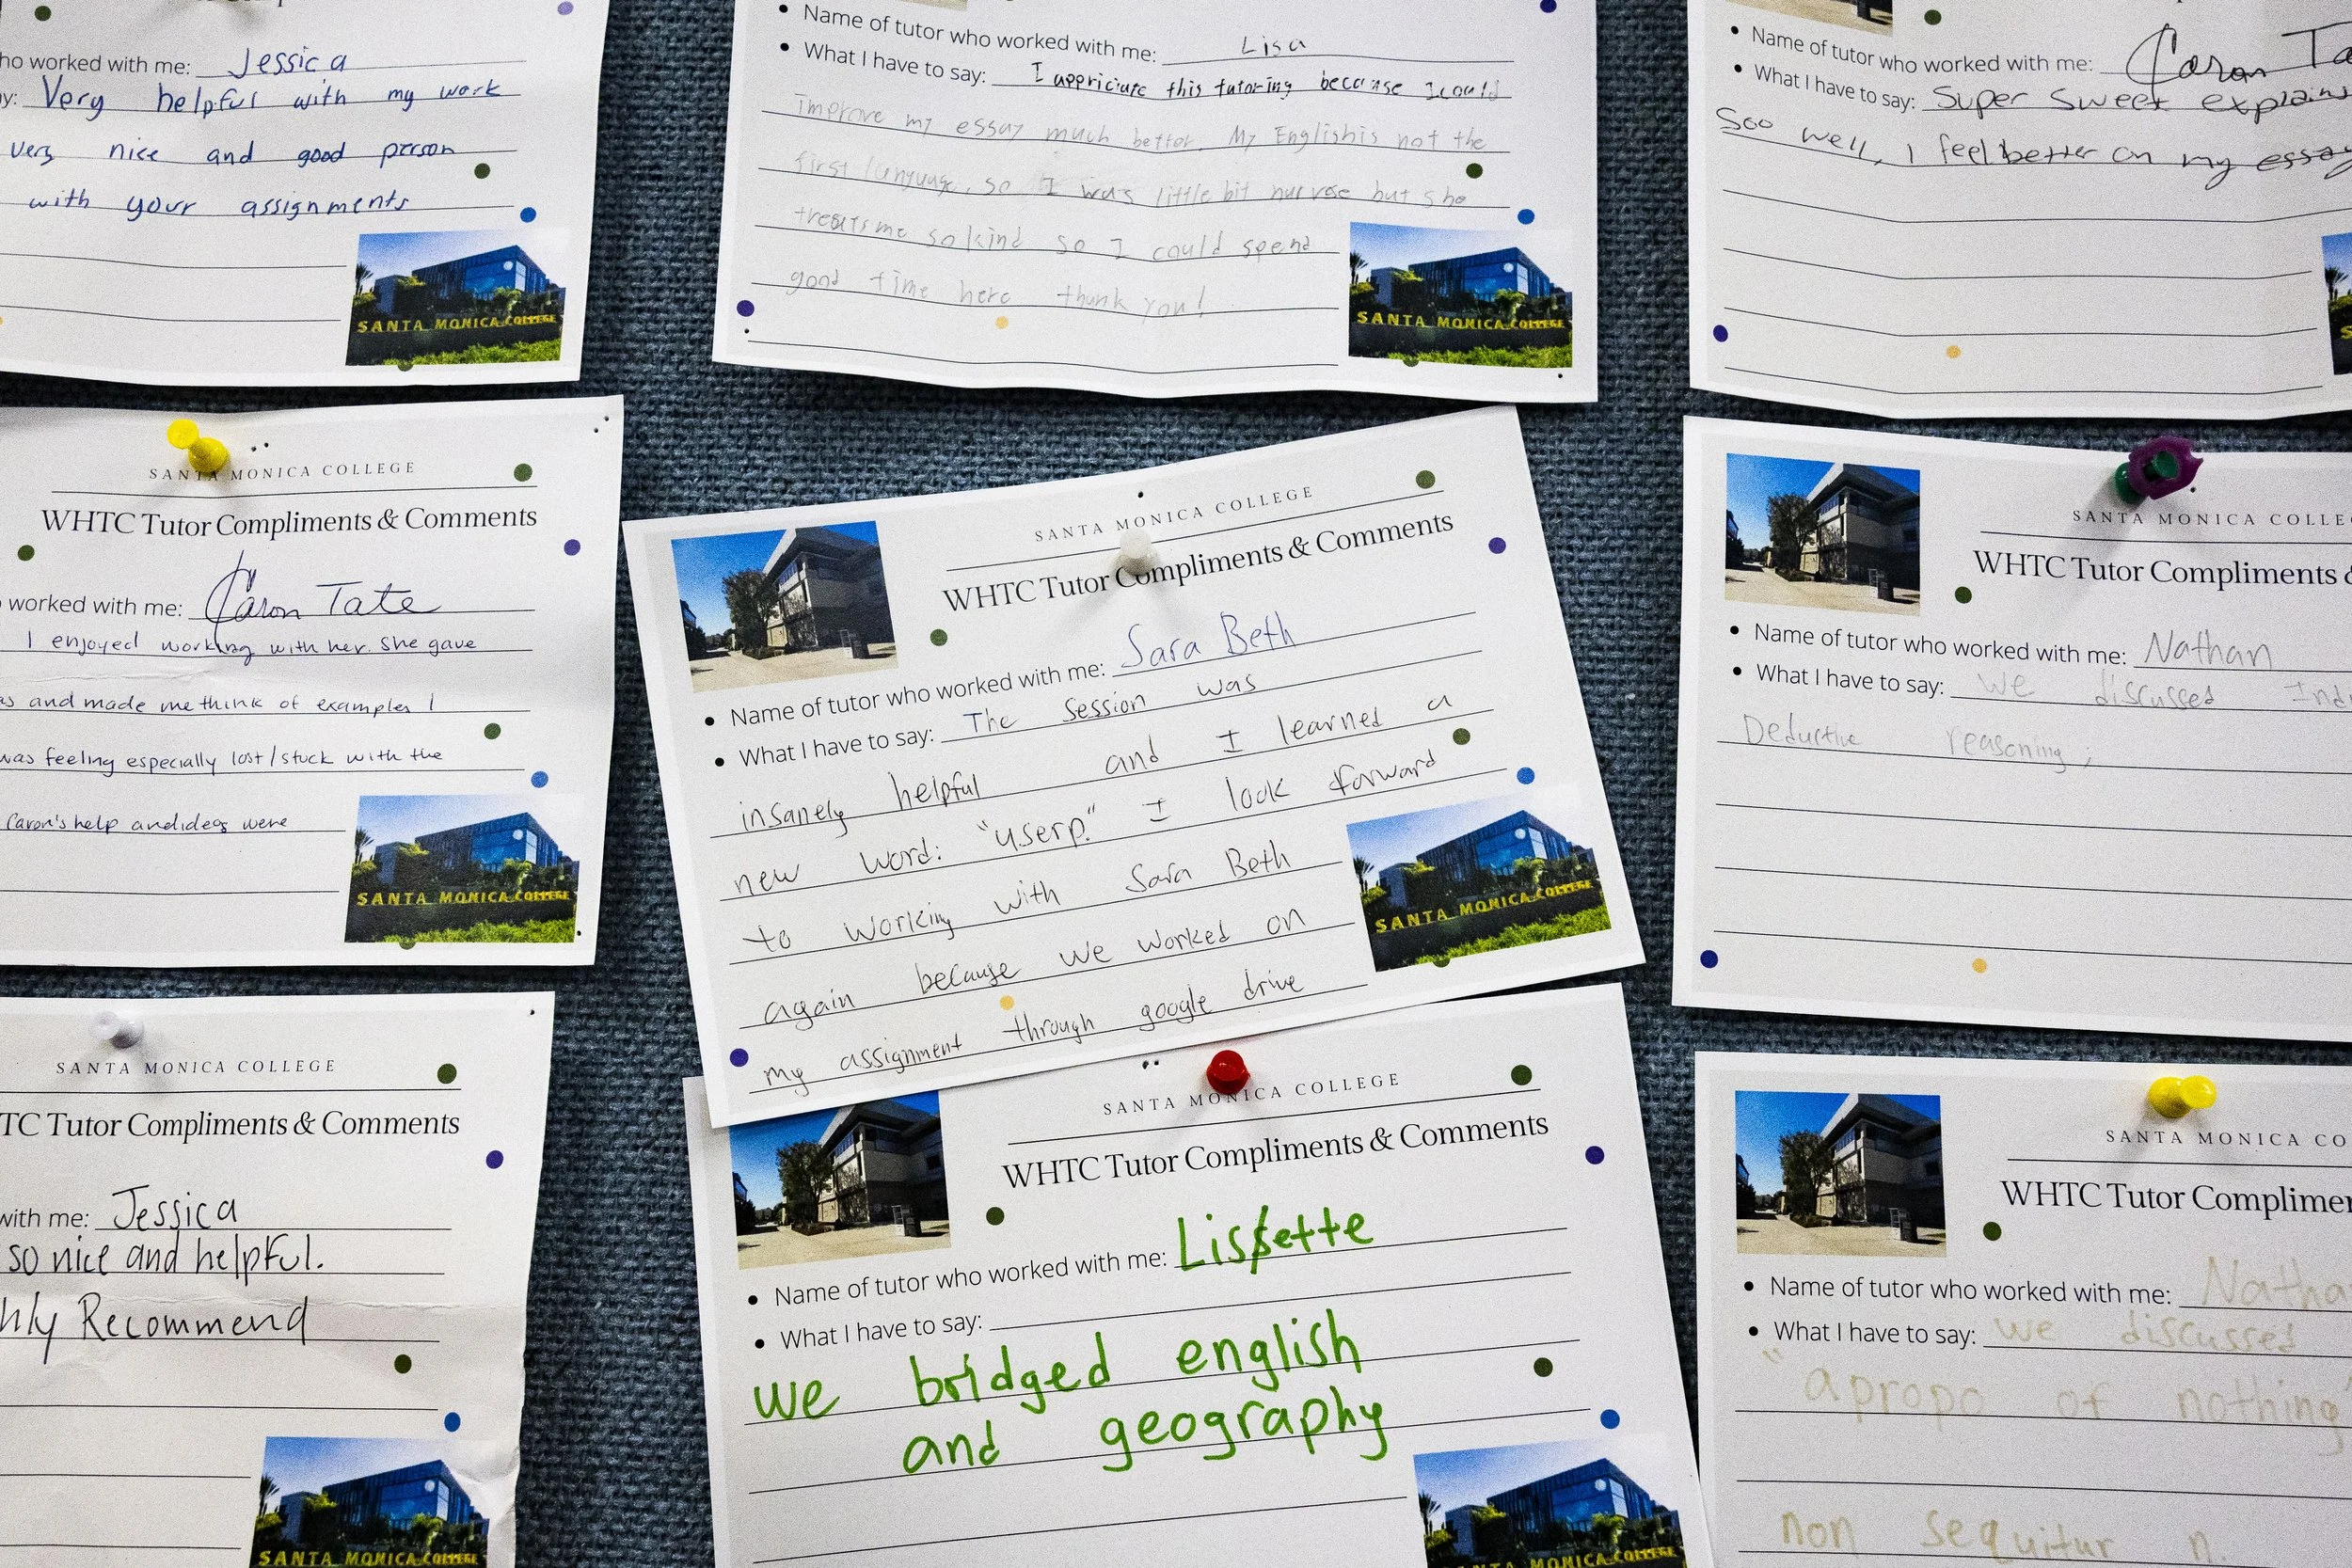 ho worked with me: Jessica
y: Very helpful with my work
very nice and good person
with your assignments
SANTA MONICA COLLEGE
• Name of tutor who worked with me: Lisa
• What I have to say: I appriciate this tutoring because I could
improve my essay much better. My English is not the
first language, so I was little bit nurvose but she
treats me so kind so I could spend
good time here thank you!
SANTA MONICA COLLEGE
• Name of tutor who worked with me: Caron Ta
• What I have to say: Super sweet explains
soo well, I feel better on my essay
SANTA MONICA COLLEGE
WHTC Tutor Compliments & Comments
worked with me: Caron Tate
I enjoyed working with her. She gave
as and made me think of examples I
was feeling especially lost/stuck with the
Caron's help and ideas were
SANTA MONICA COLLEGE
SANTA MONICA COLLEGE
WHTC Tutor Compliments & Comments
• Name of tutor who worked with me: Sara Beth
• What I have to say: The Session was
insanely helpful and I learned a
new word: "userp." I look forward
to working with Sara Beth
again because we worked on
my assignment through google drive
SANTA MONICA COLLEGE
SANTA MONICA COLLE
WHTC Tutor Compliments &
• Name of tutor who worked with me: Nathan
• What I have to say: We discussed Ind
Deductive reasoning;
SANTA MONICA COLLEGE
TC Tutor Compliments & Comments
with me: Jessica
so nice and helpful.
hly Recommend
SANTA MONICA COLLEGE
SANTA MONICA COLLEGE
WHTC Tutor Compliments & Comments
• Name of tutor who worked with me: Lissette
• What I have to say:
we bridged english
and geography
SANTA MONICA COLLEGE
SANTA MONICA CO
WHTC Tutor Complimen
• Name of tutor who worked with me: Natha
• What I have to say: We discussed
"apropo of nothing"
non sequitur n